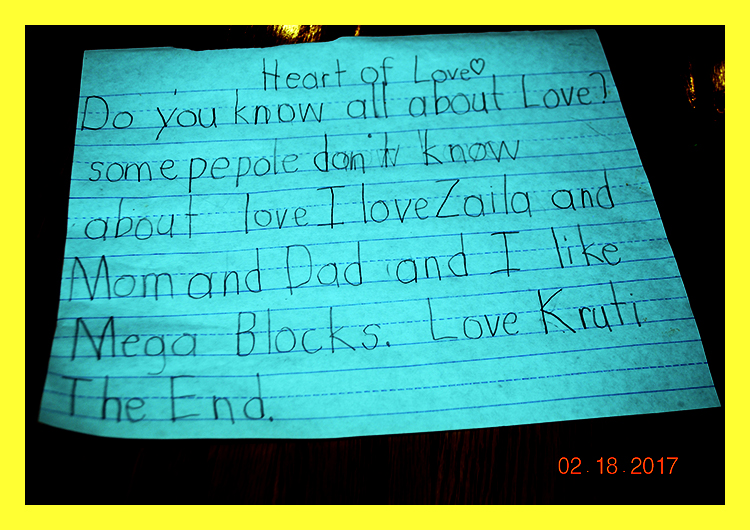 Heart of Love♡
Do you know all about Love?
some pepole don't know
about love I love Zaila and
Mom and Dad and I like
Mega Blocks. Love Kruti
The End.
02.18.2017